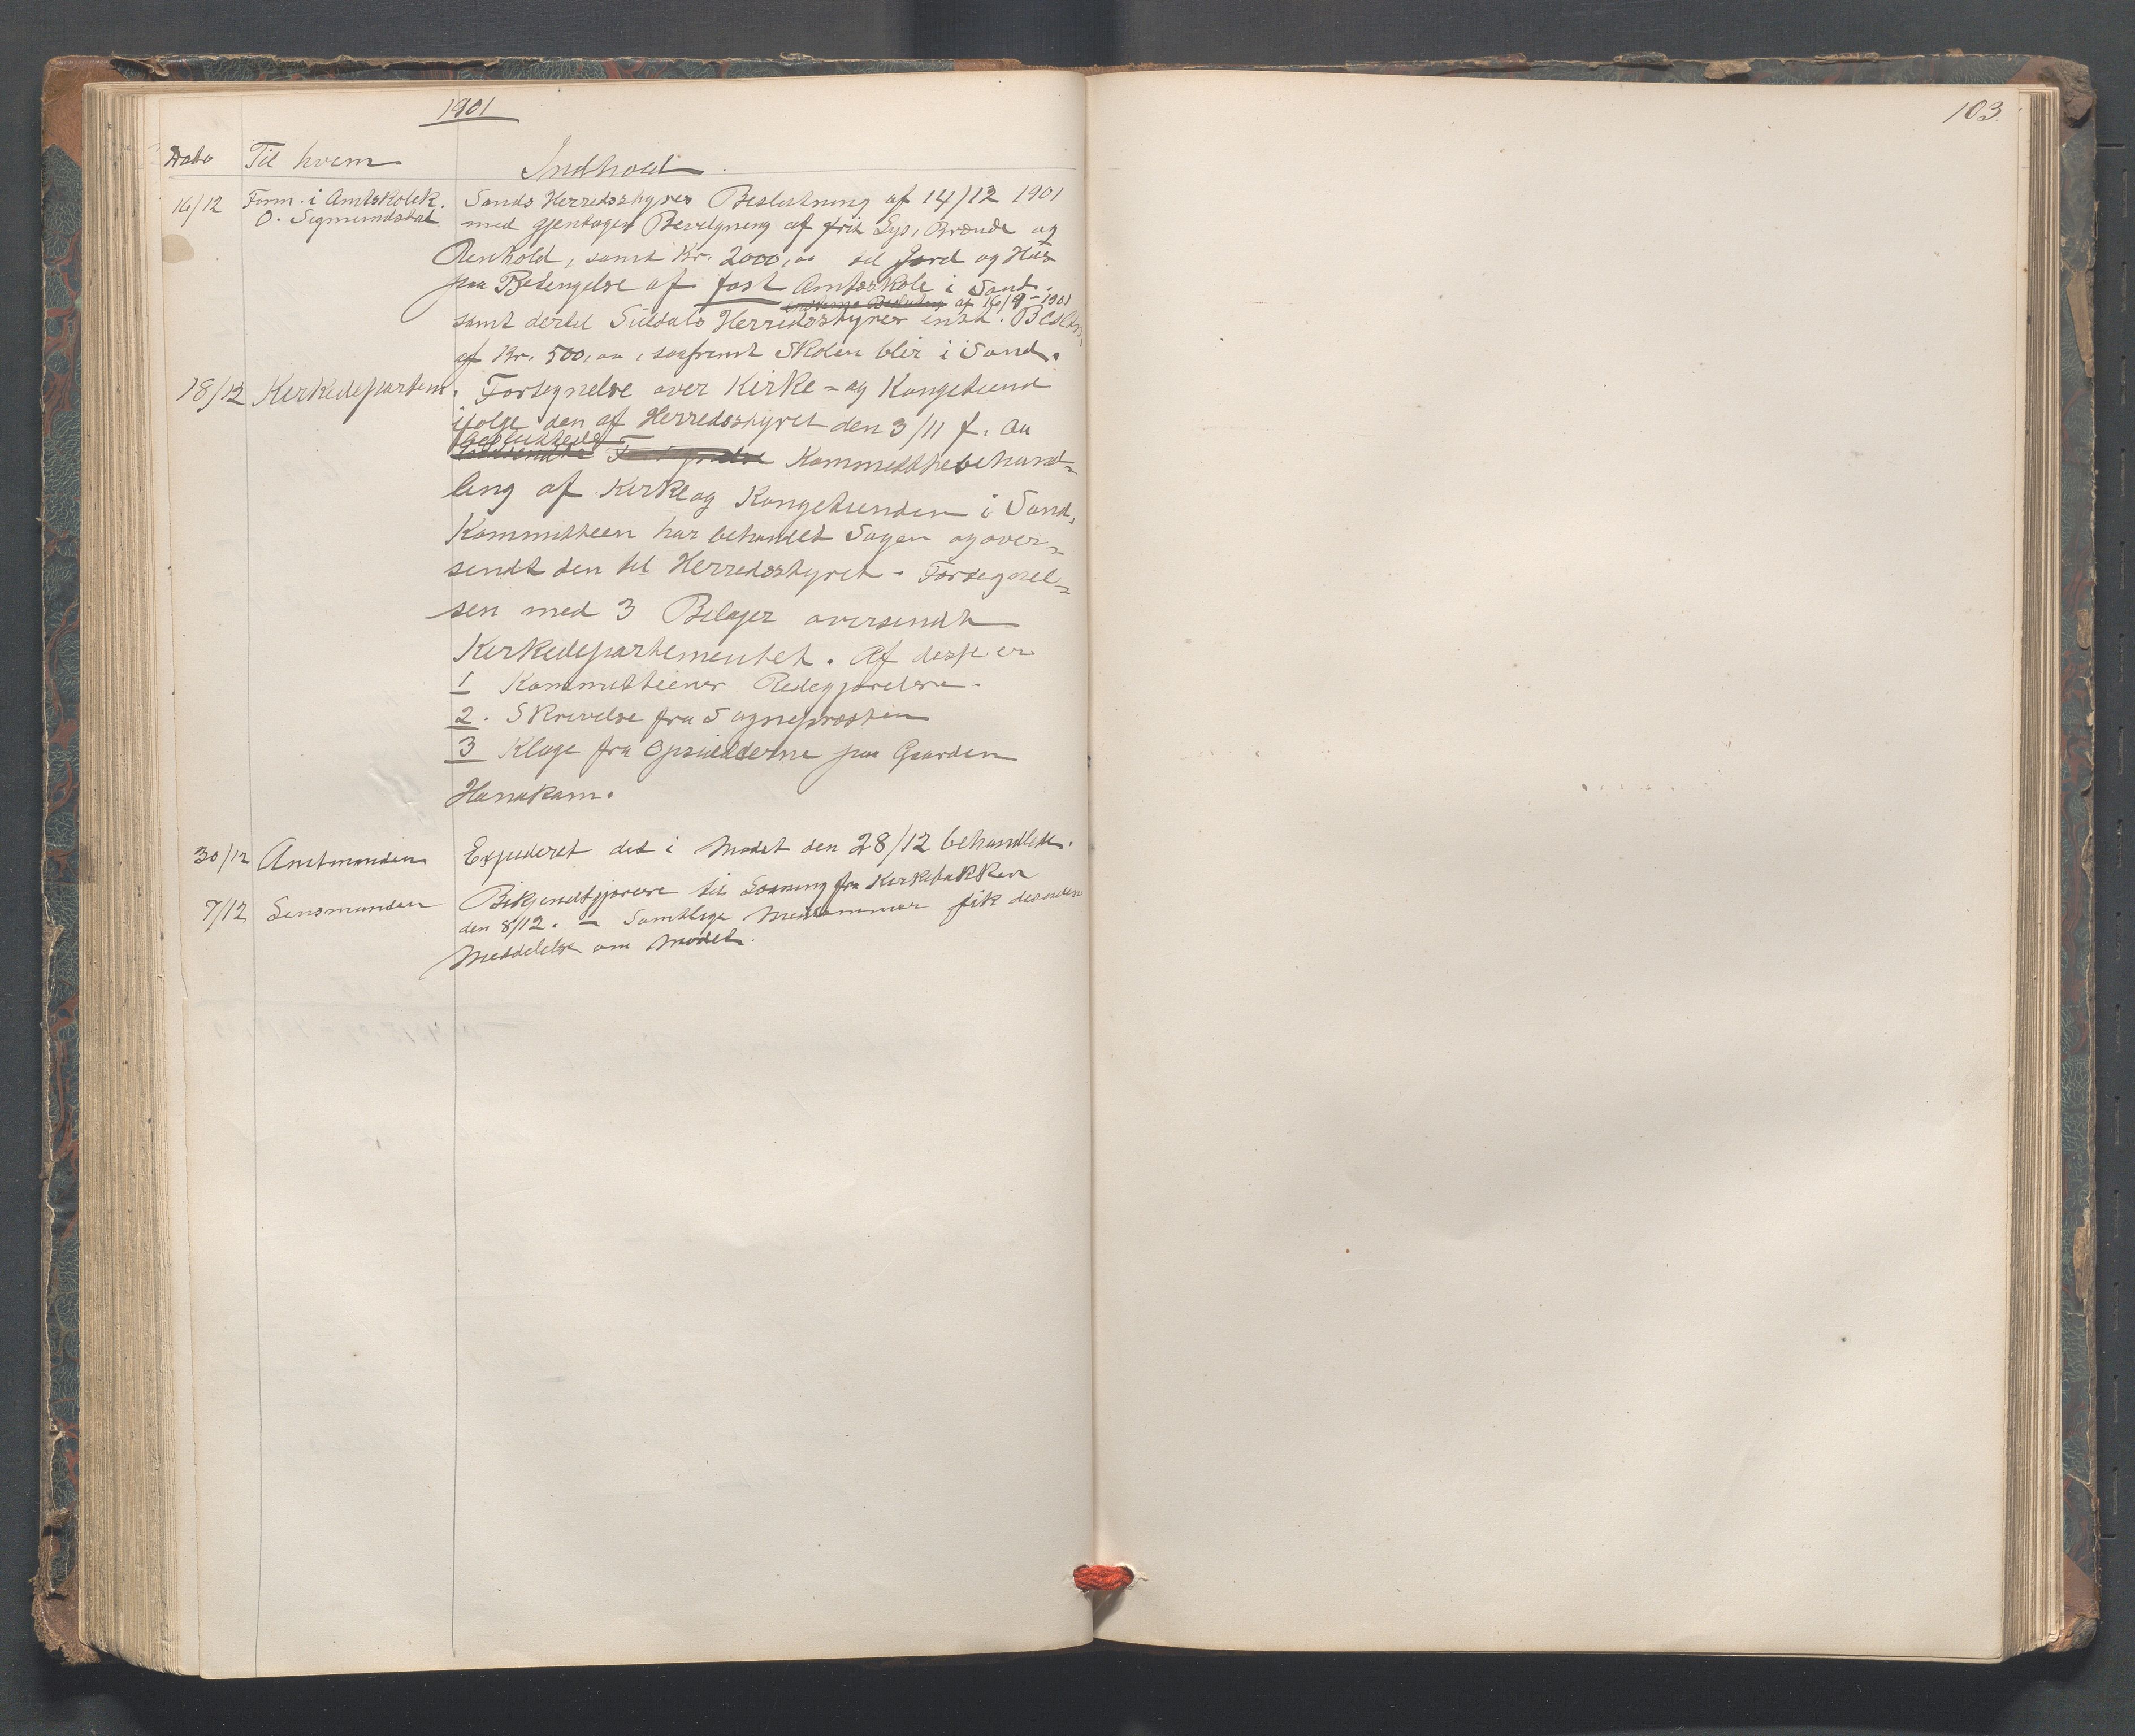 1901
Dato Til hvem Indhold.
16/12 Form. i Amtskolek. Sands Herredsstyres Beslutning af 14/12 1901
O. Sigmundstad med gjentagen Bevilgning af frit Lys, Brænde og
Renhold, samt Kr. 2000,00 til Jord og Hus
paa Betengelse af fast Amtsskole i Sand.
af 16/9 - 1901
samt dertil Suldals Herredsstyres enst. Beslutn.
af Kr. 500,00, saafremt Skolen blir i Sand.
18/12 Kirkedepartem. Fortegnelse over Kirke- og Kongetiend
ifølge den af Herredsstyret den 3/11 f. Aa
besluttede
Kommittebehand-
ling af Kirke og Kongetienden i Sand,
Kommitteen har behandlet Sagen og over-
sendt den til Herredsstyret. Fortegnel-
sen med 3 Bilager oversendt
Kirkedepartementet. Af disse er
1 Kommitteens Redegjørelse.
2. Skrivelse fra Sognepresten
3 Klage fra Opsidderne paa Gaarden
Hanakam.
30/12 Amtmanden Expederet det i Mødet den 28/12 behandlede.
7/12 Lensmanden Bekjendtgjørelse til Læsning fra Kirkebakken
den 8/12. - Samtlige Medlemmer fik desuden
Meddelelse om Mødet.
103.